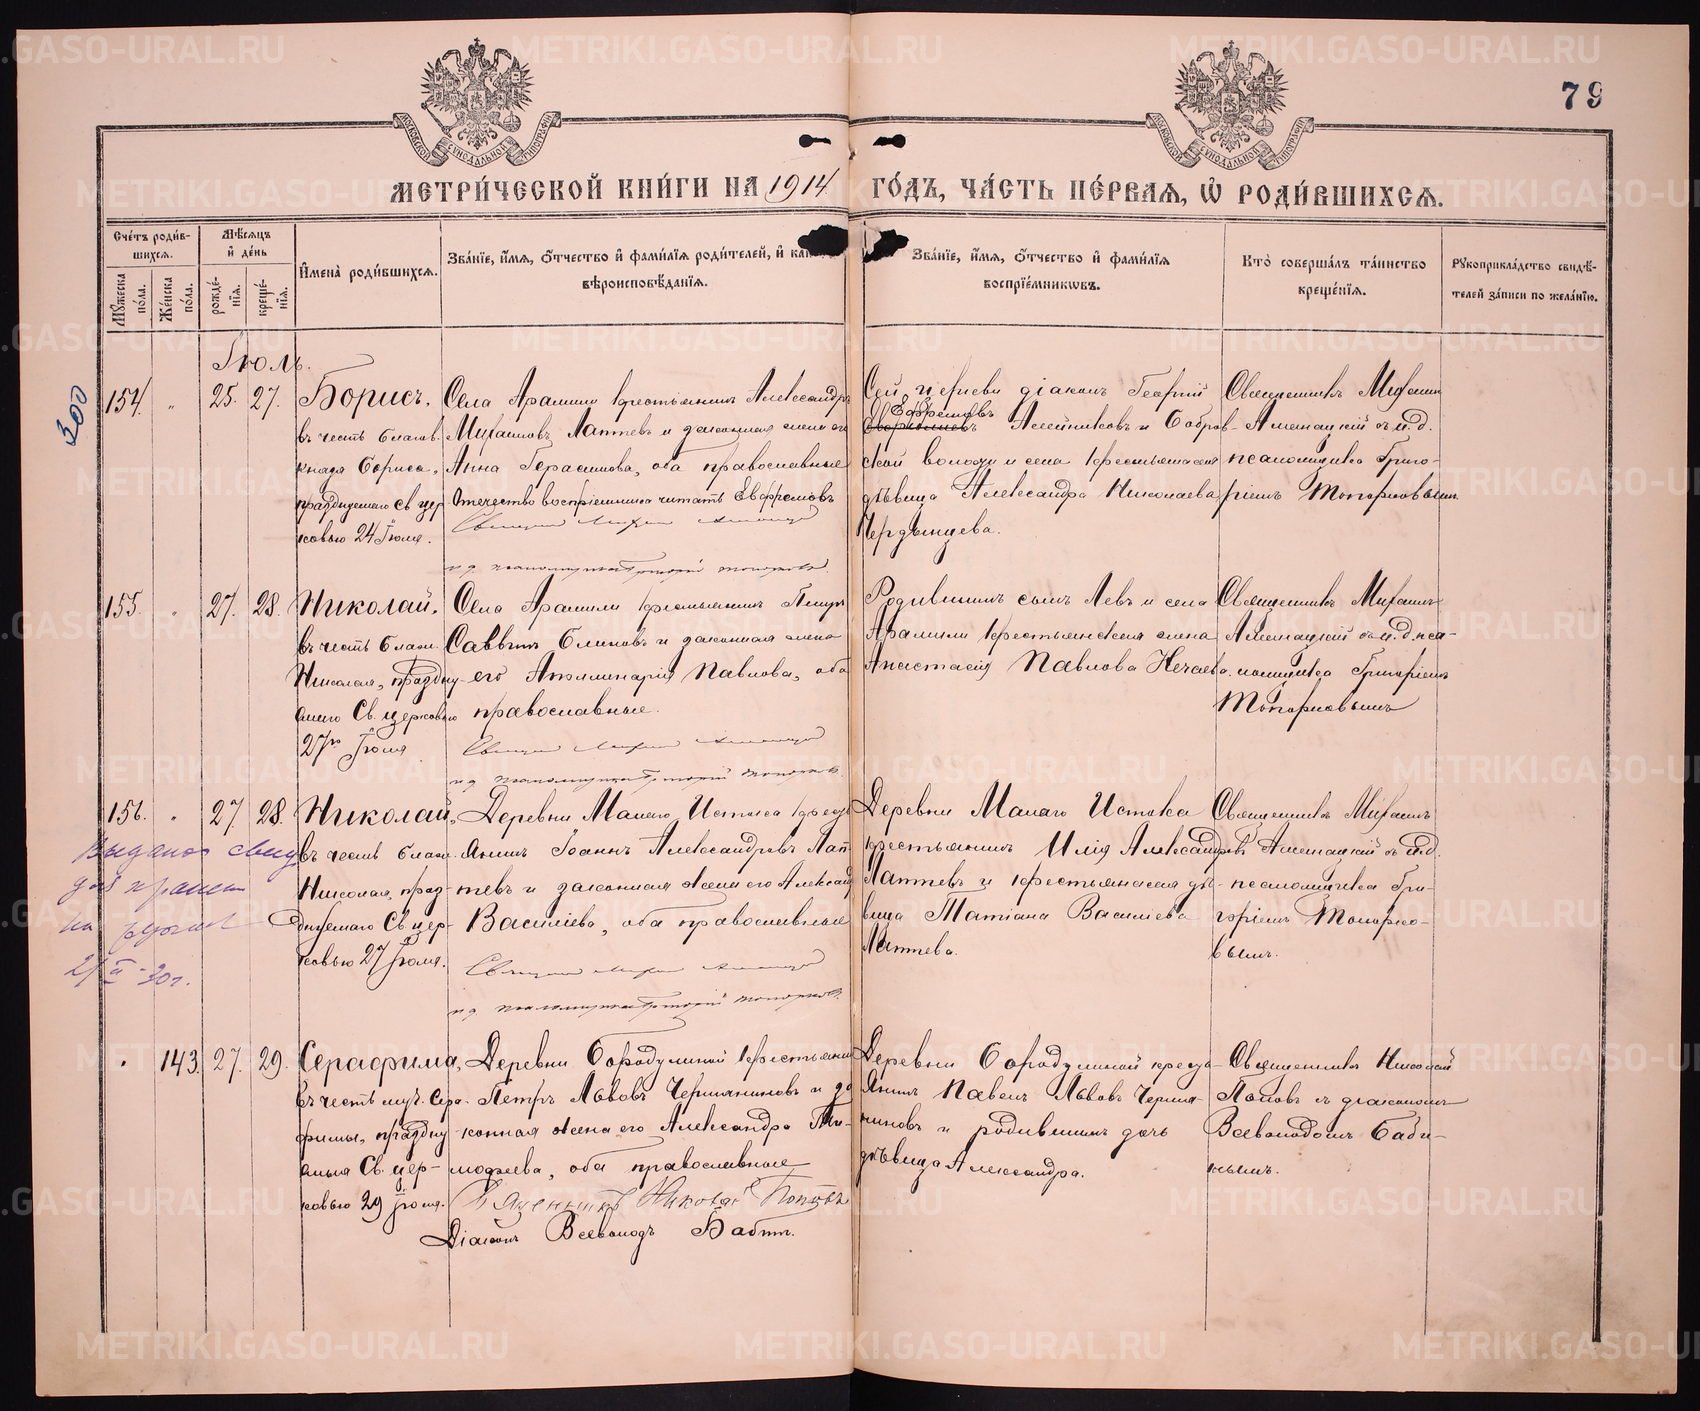 79
МОСКОВСКОЙ СѴНОДАЛЬНОЙ ТИПОГРАФІИ
МОСКОВСКОЙ СѴНОДАЛЬНОЙ ТИПОГРАФІИ
МЕТРИ́ЧЕСКОЙ КНИ́ГИ НА 1914 ГО́ДЪ, ЧА́СТЬ ПЕ́РВАЯ, Ѿ РОДИ́ВШИХСЯ.
Сче́тъ роди́вшихся.
Мѣ́сяцъ и҆ де́нь
Мꙋ́жеска по́ла.
Же́нска по́ла.
рожде́нїя.
креще́нїя.
И҆мена̀ роди́вшихся.
Зва́нїе, и҆́мя, ѻ҆́тчество и҆ фами́лїя роди́телей, и҆ как
вѣроисповѣ́данїя.
Зва́нїе, и҆́мя, ѻ҆́тчество и҆ фами́лїя
воспрїе́мникѡвъ.
Кто̀ соверша́лъ та́инство
креще́нїя.
Рꙋкоприкла́дство свидѣ́-
телей за́писи по жела́нїю.
Іюль.
300
154. " 25. 27.
Борисъ,
въ честь благов.
князя Бориса,
празднуемаго св. цер
ковью 24 Іюля.
Села Арамили крестьянинъ Александръ
Михаиловъ Лаптевъ и законная жена его
Анна Герасимова, оба православные
Отечество воспріемника читать Евфремовъ
Сей церкви діаконъ Георгій
Евфремовъ
Алейниковъ и Бобров-
ской волости и села крестьянская
дѣвица Александра Николаева
Чердынцева.
Священникъ Михаилъ
Аманацкій съ и.д.
псаломщика Григо-
ріемъ Топорковымъ
155. " 27. 28.
Николай,
въ честь блажен.
Николая, праздну-
емаго Св. церковью
27го Іюля
Села Арамили крестьянинъ Петръ
Саввинъ Блиновъ и законная жена
его Апполинарія Павлова, оба
православные.
Родившихъ сынъ Левъ и села
Арамили крестьянская жена
Анастасія Павлова Нечаева.
Священникъ Михаилъ
Аманацкій съ и.д. пса-
ломщика Григоріемъ
Топорковымъ
156. " 27. 28.
Николай,
въ честь блажен.
Николая, праз-
днуемаго Св. цер-
ковью 27 Іюля.
Выдано свид
на руки
27 II - 30 г.
Деревни Малаго Истока крест
янинъ Іоаннъ Александровъ Лап
тевъ и законная жена его Александ
Васильева, оба православные
Деревни Малаго Истока
крестьянинъ Илія Александровъ
Лаптевъ и крестьянская дѣ-
вица Татіана Васильева
Лаптева.
Священникъ Михаилъ
Аманацкій съ и.д.
псаломщика Гри-
горіемъ Топорко-
вымъ.
" 143. 27. 29.
Серафима,
въ честь муч. Сера-
фимы, праздну-
емыя Св. цер-
ковью 29 Іюля.
Деревни Бородулиной крестьянин
Петръ Львовъ Черпаниновъ и за
конная жена его Александра Ти-
мофеева, оба православные
Священникъ Николай Поповъ
Діаконъ Всеволодъ Бабинъ.
Деревни Бородулиной крест-
янинъ Павелъ Львовъ
и родившихъ дочь
дѣвица Александра.
Священникъ Николай
Поповъ съ діакономъ
Всеволодомъ Баби-
нымъ.
METRIKI.GASO-URAL.RU